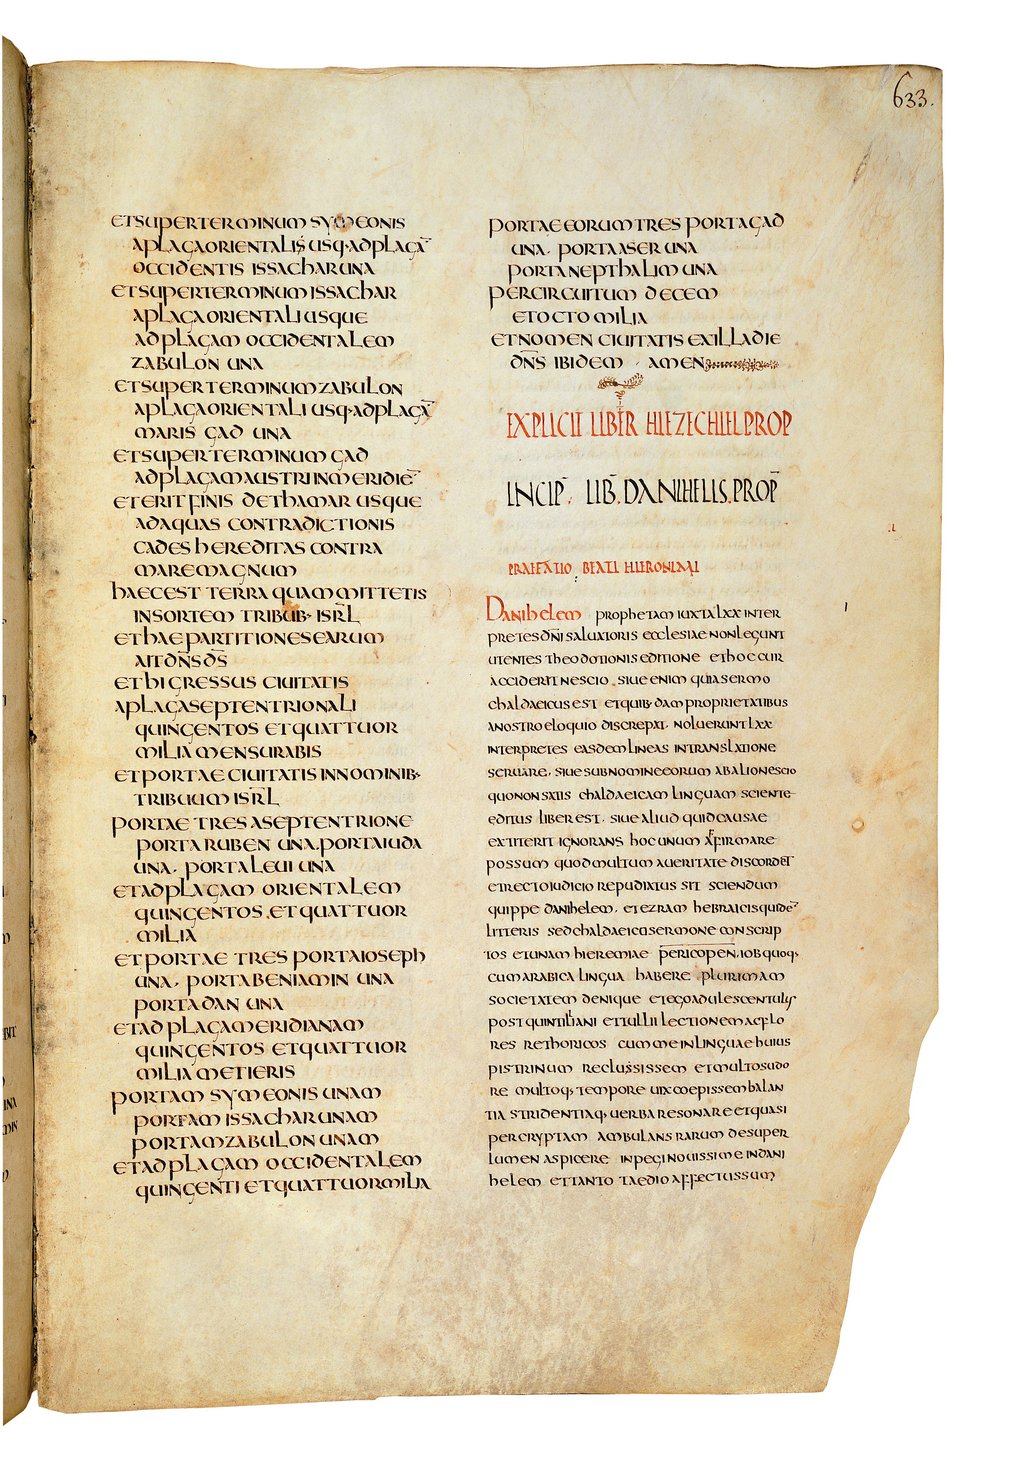 633.
ET SUPER TERMINUM SYMEONIS
A PLAGA ORIENTALI USQ· AD PLAGĀ
OCCIDENTIS ISSACHAR UNA
ET SUPER TERMINUM ISSACHAR
A PLAGA ORIENTALI USQUE
AD PLAGAM OCCIDENTALEM
ZABULON UNA
ET SUPER TERMINUM ZABULON
A PLAGA ORIENTALI USQ· AD PLAGĀ
MARIS GAD UNA
ET SUPER TERMINUM GAD
AD PLAGAM AUSTRI IN MERIDIĒ
ET ERIT FINIS DE THAMAR USQUE
AD AQUAS CONTRADICTIONIS
CADES HEREDITAS CONTRA
MARE MAGNUM
HAEC EST TERRA QUAM MITTETIS
IN SORTEM TRIBUB· ISR̄L
ET HAE PARTITIONES EARUM
AIT DN̄S D̄S
ET HI GRESSUS CIUITATIS
A PLAGA SEPTENTRIONALI
QUINGENTOS ET QUATTUOR
MILIA MENSURABIS
ET PORTAE CIUITATIS IN NOMINIB·
TRIBUUM ISR̄L
PORTAE TRES A SEPTENTRIONE
PORTA RUBEN UNA. PORTA IUDA
UNA. PORTA LEUI UNA
ET AD PLAGAM ORIENTALEM
QUINGENTOS. ET QUATTUOR
MILIA
ET PORTAE TRES PORTA IOSEPH
UNA. PORTA BENIAMIN UNA
PORTA DAN UNA
ET AD PLAGA MERIDIANAM
QUINGENTOS ET QUATTUOR
MILIA METIERIS
PORTAM SYMEONIS UNAM
PORTAM ISSACHAR UNAM
PORTAM ZABULON UNAM
ET AD PLAGAM OCCIDENTALEM
QUINGENTI ET QUATTUOR MILIA
PORTAE EORUM TRES PORTA GAD
UNA. PORTA ASER UNA
PORTA NEPTHALIM UNA
PER CIRCUITUM DECEM
ET OCTO MILIA
ET NOMEN CIUITATIS EX ILLA DIE
DN̄S IBIDEM · AMEN
EXPLICIT LIBER HIEZECHIEL PROP
INCIP̄. LIB̄. DANIHELIS. PROP̄
PRAEFATIO BEATI HIERONIMI
Danihelem prophetam iuxta LXX inter
pretes dn̄i saluatoris ecclesiae non legunt
utentes theodotionis editione et hoc cur
acciderit nescio. siue enim quia sermo
chaldaeicus est et quib·dam proprietatibus
a nostro eloquio discrepat. noluerunt LXX
interpretes easdem lineas in translatione
seruare. siue sub nomine eorum ab alio nescio
quo non satis chaldaeicam linguam sciente
editus liber est. siue aliud quid causae
extiterit ignorans hoc unum affirmare
possum quod multum a ueritate discordet
et recto iudicio repudiatus sit sciendum
quippe danihelem. et ezram hebraicis quidē
litteris sed chaldaeico sermone conscrip
tos et unam hieremiae pericopen. iob quoq·
cum arabica lingua habere plurimam
societatem denique et ego adulescentulus
post quintiliani et tullii lectionem ac flo
res rethoricos cum me in linguae huius
pistrinum reclussissem et multo sudo
re multoq· tempore uix coepissem halan
tia stridentiaq· uerba resonare et quasi
per cryptam ambulans rarum desuper
lumen aspicere inpegi nouissime in dani
helem et tanto taedio affectus sum